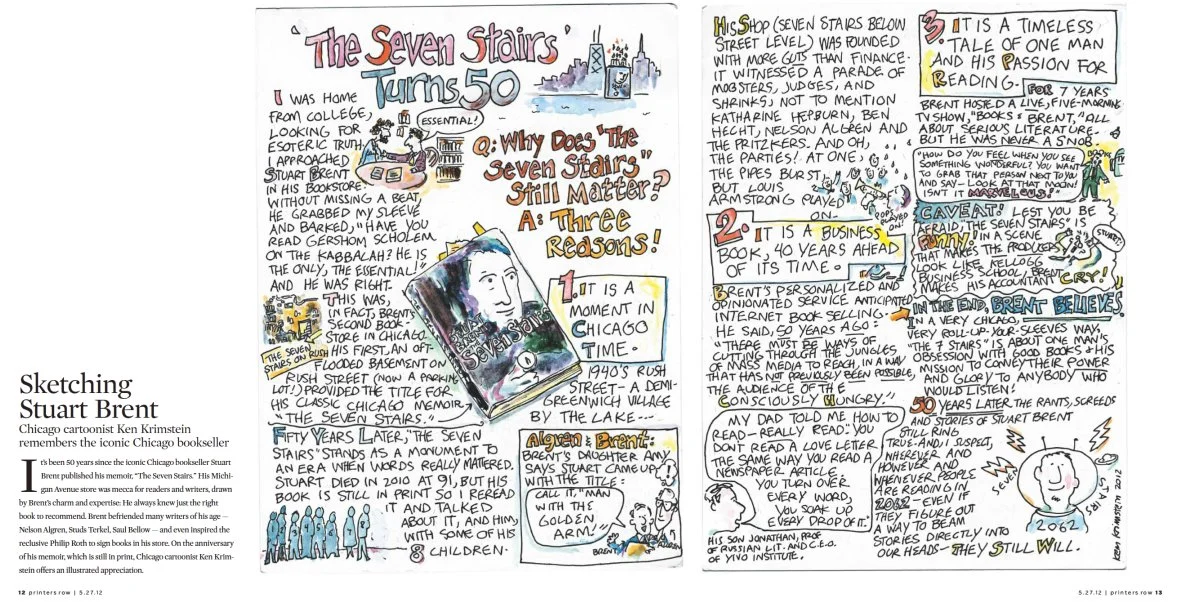 Sketching
Stuart Brent
Chicago cartoonist Ken Krimstein
remembers the iconic Chicago bookseller
It's been 50 years since the iconic Chicago bookseller Stuart
Brent published his memoir, "The Seven Stairs." His Michi-
gan Avenue store was mecca for readers and writers, drawn
by Brent's charm and expertise: He always knew just the right
book to recommend. Brent befriended many writers of his age —
Nelson Algren, Studs Terkel, Saul Bellow — and even inspired the
reclusive Philip Roth to sign books in his store. On the anniversary
of his memoir, which is still in print, Chicago cartoonist Ken Krim-
stein offers an illustrated appreciation.
12 printers row | 5.27.12
'The Seven Stairs'
Turns 50
I WAS HOME
FROM COLLEGE,
LOOKING FOR
ESOTERIC TRUTH.
I APPROACHED
STUART BRENT
IN HIS BOOKSTORE.
WITHOUT MISSING A BEAT,
HE GRABBED MY SLEEVE
AND BARKED, "HAVE YOU
READ GERSHOM SCHOLEM
ON THE KABBALAH? HE IS
THE ONLY, THE ESSENTIAL!"
AND HE WAS RIGHT.
ESSENTIAL!
THIS WAS,
IN FACT, BRENT'S
SECOND BOOK-
STORE IN CHICAGO.
HIS FIRST, AN OFT-
FLOODED BASEMENT ON
RUSH STREET (NOW A PARKING
LOT!) PROVIDED THE TITLE FOR
HIS CLASSIC CHICAGO MEMOIR,
"THE SEVEN STAIRS."
THE SEVEN
STAIRS ON RUSH
FIFTY YEARS LATER, "THE SEVEN
STAIRS" STANDS AS A MONUMENT TO
AN ERA WHEN WORDS REALLY MATTERED.
STUART DIED IN 2010 AT 91, BUT HIS
BOOK IS STILL IN PRINT SO I REREAD
IT AND TALKED
ABOUT IT, AND HIM,
WITH SOME OF HIS
8 CHILDREN.
Q: Why Does "The
Seven Stairs"
Still Matter?
A: Three
Reasons!
Seven Stairs
1. IT IS A
MOMENT IN
CHICAGO
TIME.
1940'S RUSH
STREET – A DEMI-
GREENWICH VILLAGE
BY THE LAKE---
Algren & Brent:
BRENT'S DAUGHTER AMY
SAYS STUART CAME UP
WITH THE TITLE:
CALL IT, "MAN
WITH THE
GOLDEN
ARM!"
BRENT
ALGREN
HIS SHOP (SEVEN STAIRS BELOW
STREET LEVEL) WAS FOUNDED
WITH MORE GUTS THAN FINANCE.
IT WITNESSED A PARADE OF
MOBSTERS, JUDGES, AND
SHRINKS, NOT TO MENTION
KATHARINE HEPBURN, BEN
HECHT, NELSON ALGREN AND
THE PRITZKERS. AND OH,
THE PARTIES! AT ONE,
THE PIPES BURST,
BUT LOUIS
ARMSTRONG PLAYED
ON.
POPS
PLAYED
ON!
2. IT IS A BUSINESS
BOOK, 40 YEARS AHEAD
OF ITS TIME.
BRENT'S PERSONALIZED AND
OPINIONATED SERVICE ANTICIPATED
INTERNET BOOK SELLING.
HE SAID, 50 YEARS AGO:
"THERE MUST BE WAYS OF
CUTTING THROUGH THE JUNGLES
OF MASS MEDIA TO REACH, IN A WAY
THAT HAS NOT PREVIOUSLY BEEN POSSIBLE,
THE AUDIENCE OF THE
CONSCIOUSLY HUNGRY."
MY DAD TOLD ME HOW TO
READ – REALLY READ: "YOU
DON'T READ A LOVE LETTER
THE SAME WAY YOU READ A
NEWSPAPER ARTICLE.
YOU TURN OVER
EVERY WORD,
YOU SOAK UP
EVERY DROP OF IT."
HIS SON JONATHAN, PROF
OF RUSSIAN LIT. AND C.E.O.
OF YIVO INSTITUTE.
3. IT IS A TIMELESS
TALE OF ONE MAN
AND HIS PASSION FOR
READING.
FOR 7 YEARS
BRENT HOSTED A LIVE, FIVE-MORNING
TV SHOW, "BOOKS & BRENT," ALL
ABOUT SERIOUS LITERATURE.
BUT HE WAS NEVER A SNOB.
"HOW DO YOU FEEL WHEN YOU SEE
SOMETHING WONDERFUL? YOU WANT
TO GRAB THAT PERSON NEXT TO YOU
AND SAY – LOOK AT THAT MOON!
ISN'T IT MARVELOUS?"
CAVEAT! LEST YOU BE
AFRAID, "THE SEVEN STAIRS" IS
FUNNY! IN A SCENE
THAT MAKES "THE PRODUCERS"
LOOK LIKE KELLOGG
BUSINESS SCHOOL, BRENT
MAKES HIS ACCOUNTANT CRY!
STUART!
IN THE END, BRENT BELIEVES.
IN A VERY CHICAGO,
VERY ROLL-UP-YOUR-SLEEVES WAY,
"THE 7 STAIRS" IS ABOUT ONE MAN'S
OBSESSION WITH GOOD BOOKS & HIS
MISSION TO CONVEY THEIR POWER
AND GLORY TO ANYBODY WHO
WOULD LISTEN!
50 YEARS LATER THE RANTS, SCREEDS
AND STORIES OF STUART BRENT
STILL RING
TRUE. AND, I SUSPECT,
WHEREVER AND
HOWEVER AND
WHENEVER PEOPLE
ARE READING IN
2062 – EVEN IF
THEY FIGURE OUT
A WAY TO BEAM
STORIES DIRECTLY INTO
OUR HEADS – THEY STILL WILL.
SEVEN
STAIRS
2062
5.27.12 | printers row 13